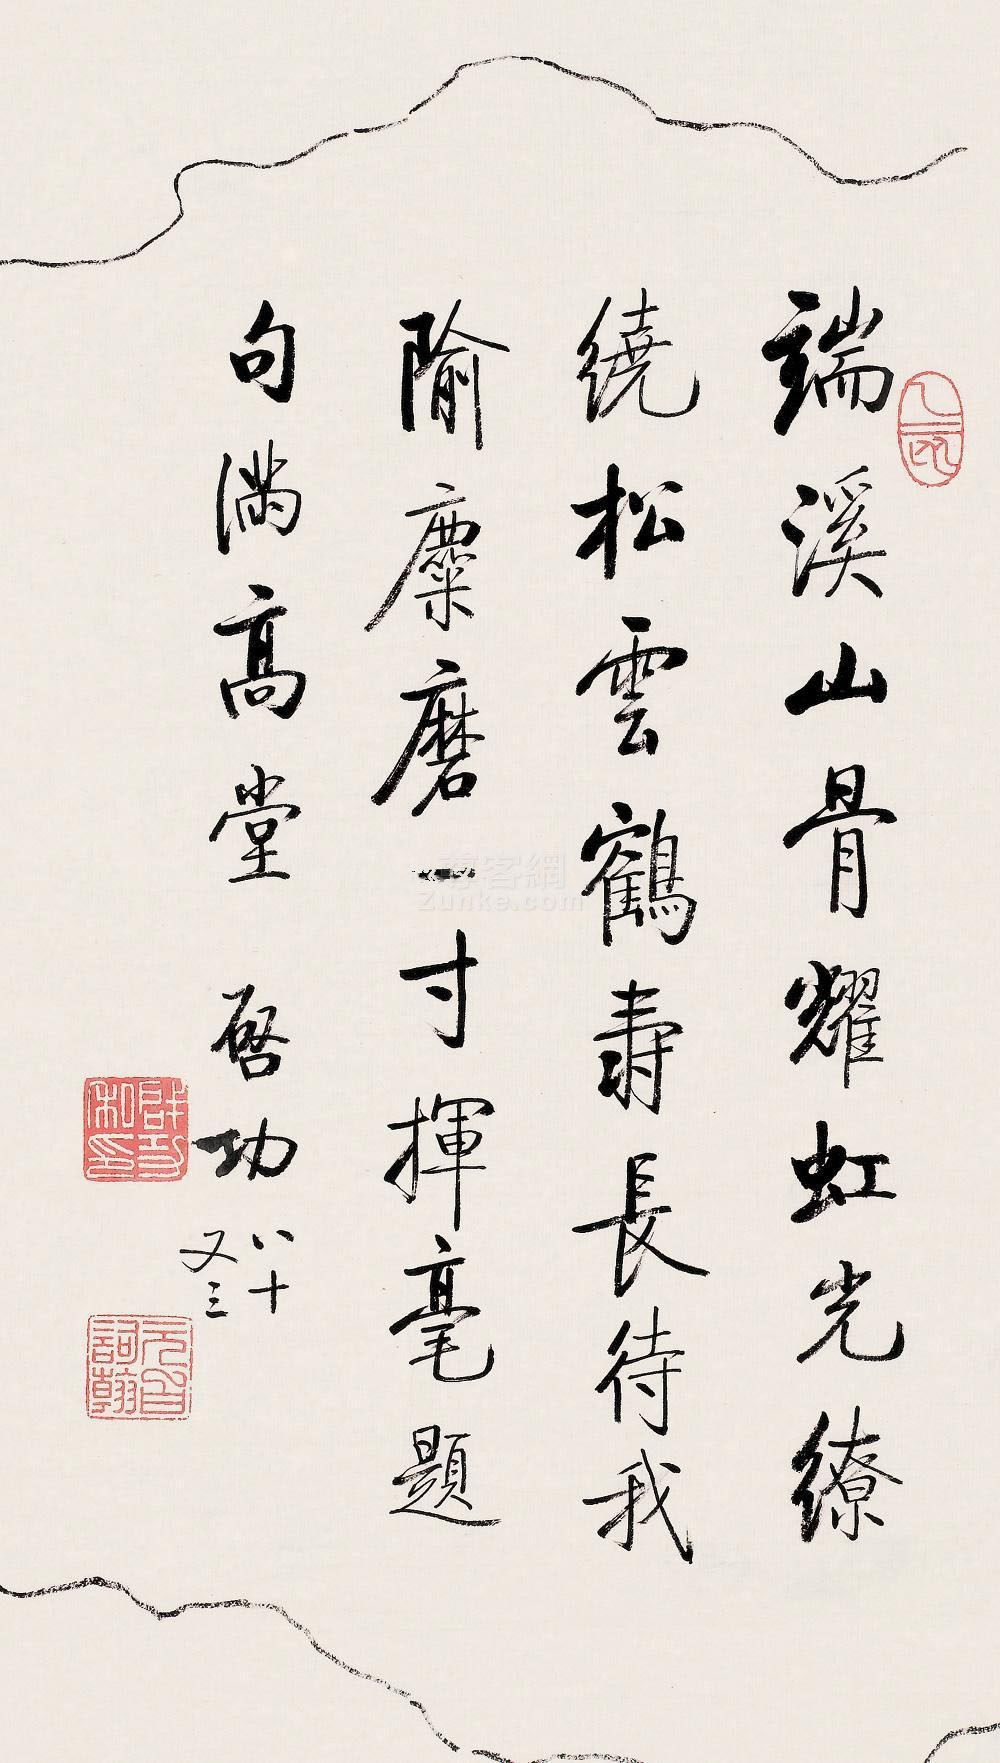 端溪山骨耀虹光繚
繞松雲鶴壽長待我
隃麋磨一寸揮毫題
句滿高堂 啓功
八十
又三
啟功私印
元白詞翰
尊客網
Zunke.com